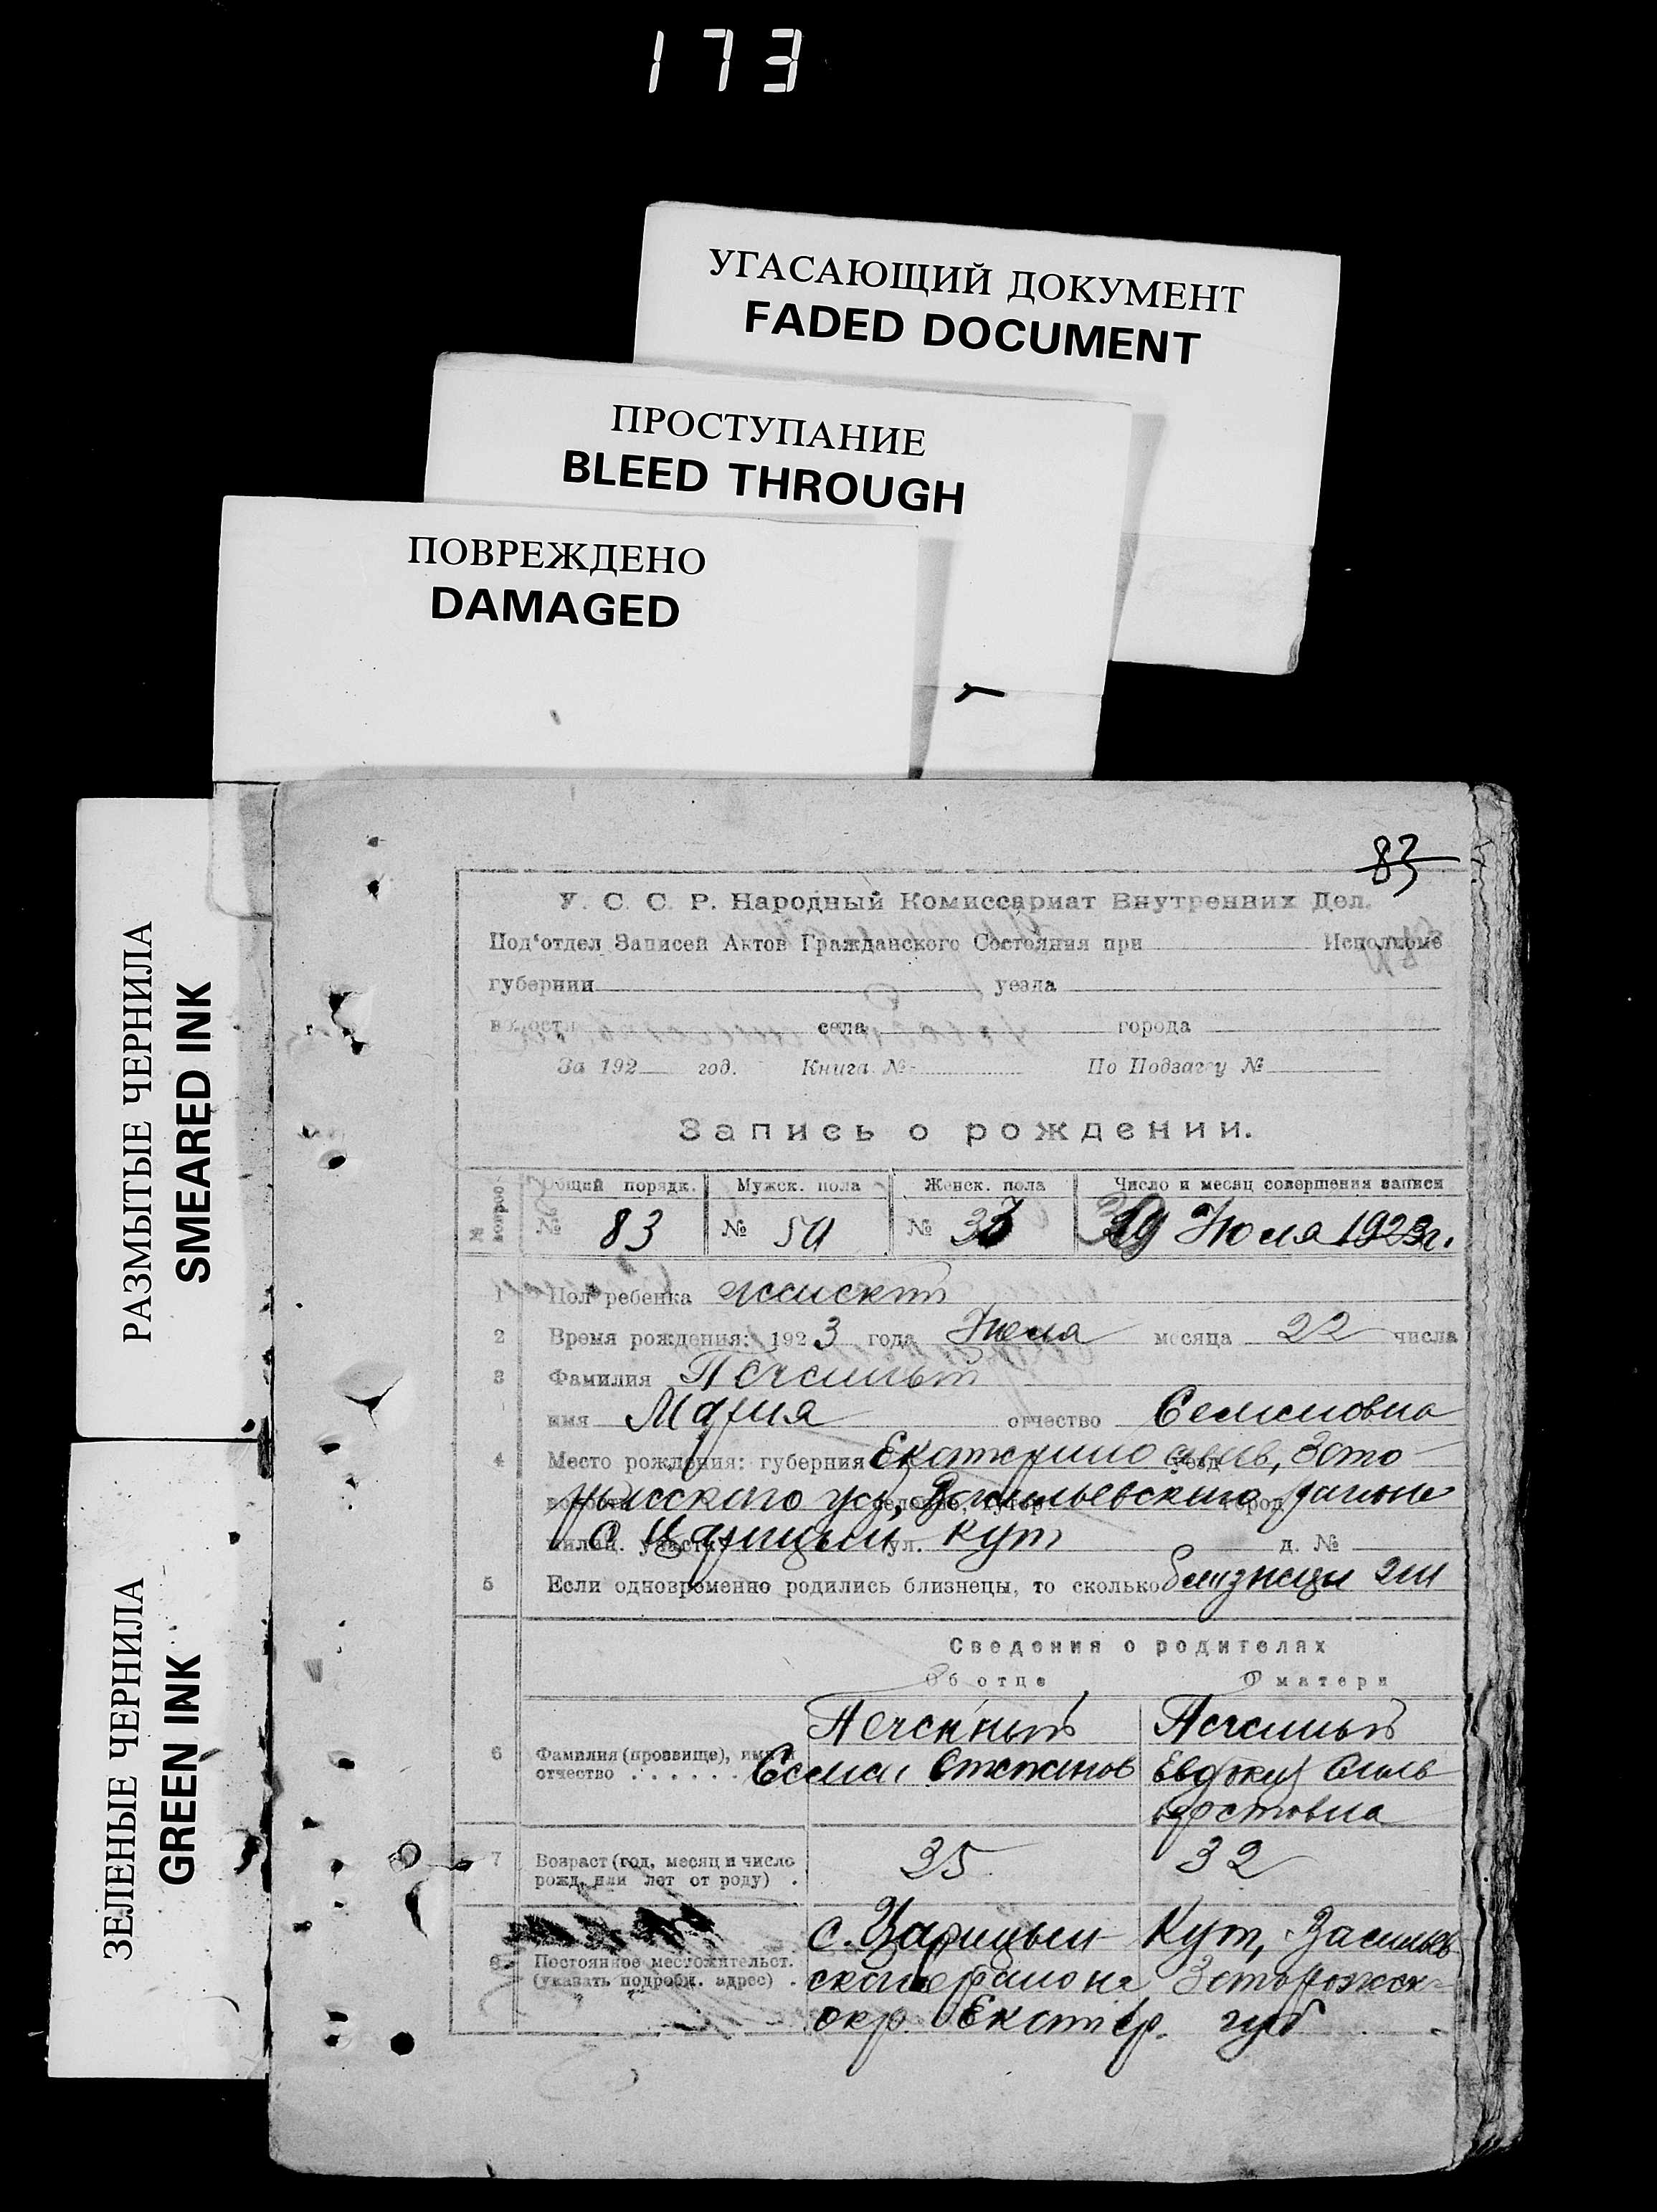 173
УГАСАЮЩИЙ ДОКУМЕНТ
FADED DOCUMENT
ПРОСТУПАНИЕ
BLEED THROUGH
ПОВРЕЖДЕНО
DAMAGED
РАЗМЫТЫЕ ЧЕРНИЛА
SMEARED INK
ЗЕЛЕНЫЕ ЧЕРНИЛА
GREEN INK
83
У. С. С. Р. Народный Комиссариат Внутренних Дел.
Под‘отдел Записей Актов Гражданского Состояния при Исполкоме
губернии уезда
волости села города
За 192 год. Книга № По Подзагсу №
Запись о рождении.
Общий порядк. Мужск. пола Женск. пола Число и месяц совершения записи
№ 83 № 50 № 33 Июля 1923г.
1 Пол ребенка женский
2 Время рождения: 1923 года Июля месяца 22 числа
3 Фамилия Печеный
имя Мария отчество Семеновна
4 Место рождения: губерния уезд
Васильевского района
с Царицын Кут ул. д. №
5 Если одновременно родились близнецы, то сколько близнецы
Сведения о родителях
Об отце О матери
Печеный Печеный
6 Фамилия (прозвище), имя и
отчество . . . . . Семен Степанов
7 Возраст (год, месяц и число
рожд. или лет от роду) . 35 32
с. Царицын Кут, Васильев
8 Постоянное местожительст.
(указать подробн. адрес) . ского района Запорожск
окр. Екатер. губ